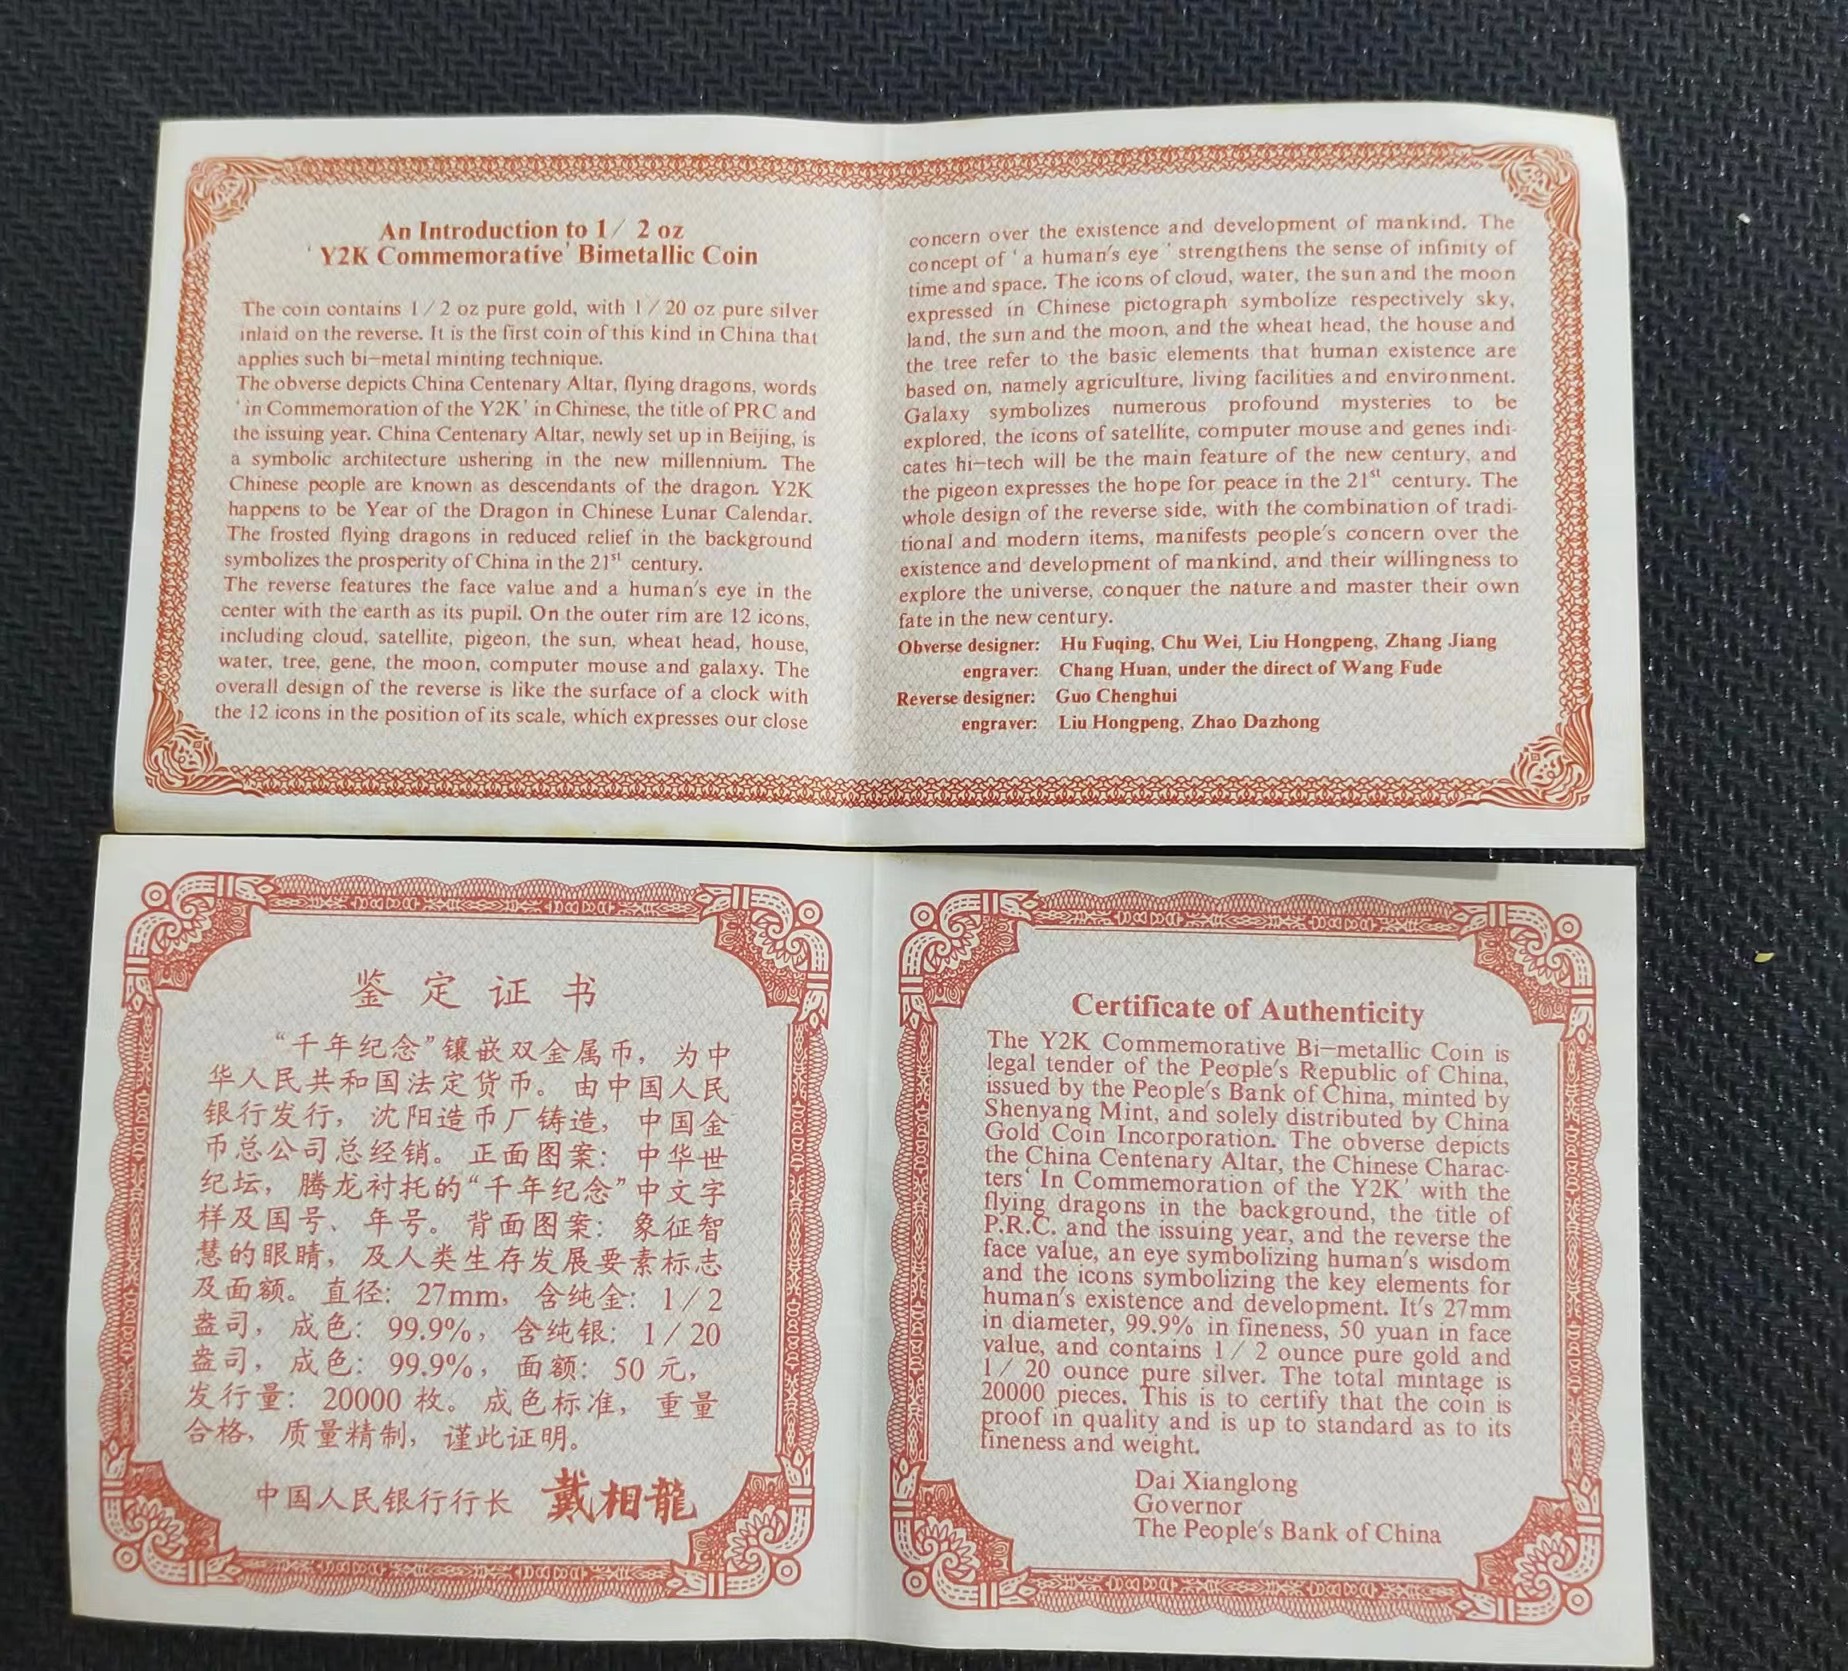 An Introduction to 1/ 2 oz
‘Y2K Commemorative’ Bimetallic Coin
The coin contains 1/2 oz pure gold, with 1/20 oz pure silver
inlaid on the reverse. It is the first coin of this kind in China that
applies such bi-metal minting technique.
The obverse depicts China Centenary Altar, flying dragons, words
‘in Commemoration of the Y2K’ in Chinese, the title of PRC and
the issuing year. China Centenary Altar, newly set up in Beijing, is
a symbolic architecture ushering in the new millennium. The
Chinese people are known as descendants of the dragon. Y2K
happens to be Year of the Dragon in Chinese Lunar Calendar.
The frosted flying dragons in reduced relief in the background
symbolizes the prosperity of China in the 21st century.
The reverse features the face value and a human's eye in the
center with the earth as its pupil. On the outer rim are 12 icons,
including cloud, satellite, pigeon, the sun, wheat head, house,
water, tree, gene, the moon, computer mouse and galaxy. The
overall design of the reverse is like the surface of a clock with
the 12 icons in the position of its scale, which expresses our close
concern over the existence and development of mankind. The
concept of ‘a human's eye’ strengthens the sense of infinity of
time and space. The icons of cloud, water, the sun and the moon
expressed in Chinese pictograph symbolize respectively sky,
land, the sun and the moon, and the wheat head, the house and
the tree refer to the basic elements that human existence are
based on, namely agriculture, living facilities and environment.
Galaxy symbolizes numerous profound mysteries to be
explored, the icons of satellite, computer mouse and genes indi-
cates hi-tech will be the main feature of the new century, and
the pigeon expresses the hope for peace in the 21st century. The
whole design of the reverse side, with the combination of tradi-
tional and modern items, manifests people's concern over the
existence and development of mankind, and their willingness to
explore the universe, conquer the nature and master their own
fate in the new century.
Obverse designer: Hu Fuqing, Chu Wei, Liu Hongpeng, Zhang Jiang
engraver: Chang Huan, under the direct of Wang Fude
Reverse designer: Guo Chenghui
engraver: Liu Hongpeng, Zhao Dazhong
鉴定证书
“千年纪念”镶嵌双金属币，为中
华人民共和国法定货币。由中国人民
银行发行，沈阳造币厂铸造，中国金
币总公司总经销。正面图案：中华世
纪坛，腾龙衬托的“千年纪念”中文字
样及国号、年号。背面图案：象征智
慧的眼睛，及人类生存发展要素标志
及面额。直径：27mm，含纯金：1/2
盎司，成色：99.9%，含纯银：1/20
盎司，成色：99.9%，面额：50元，
发行量：20000枚。成色标准，重量
合格，质量精制，谨此证明。
中国人民银行行长 戴相龍
Certificate of Authenticity
The Y2K Commemorative Bi-metallic Coin is
legal tender of the People's Republic of China,
issued by the People's Bank of China, minted by
Shenyang Mint, and solely distributed by China
Gold Coin Incorporation. The obverse depicts
the China Centenary Altar, the Chinese Charac-
ters‘ In Commemoration of the Y2K’ with the
flying dragons in the background, the title of
P.R.C. and the issuing year, and the reverse the
face value, an eye symbolizing human's wisdom
and the icons symbolizing the key elements for
human's existence and development. It's 27mm
in diameter, 99.9% in fineness, 50 yuan in face
value, and contains 1/2 ounce pure gold and
1/ 20 ounce pure silver. The total mintage is
20000 pieces. This is to certify that the coin is
proof in quality and is up to standard as to its
fineness and weight.
Dai Xianglong
Governor
The People's Bank of China